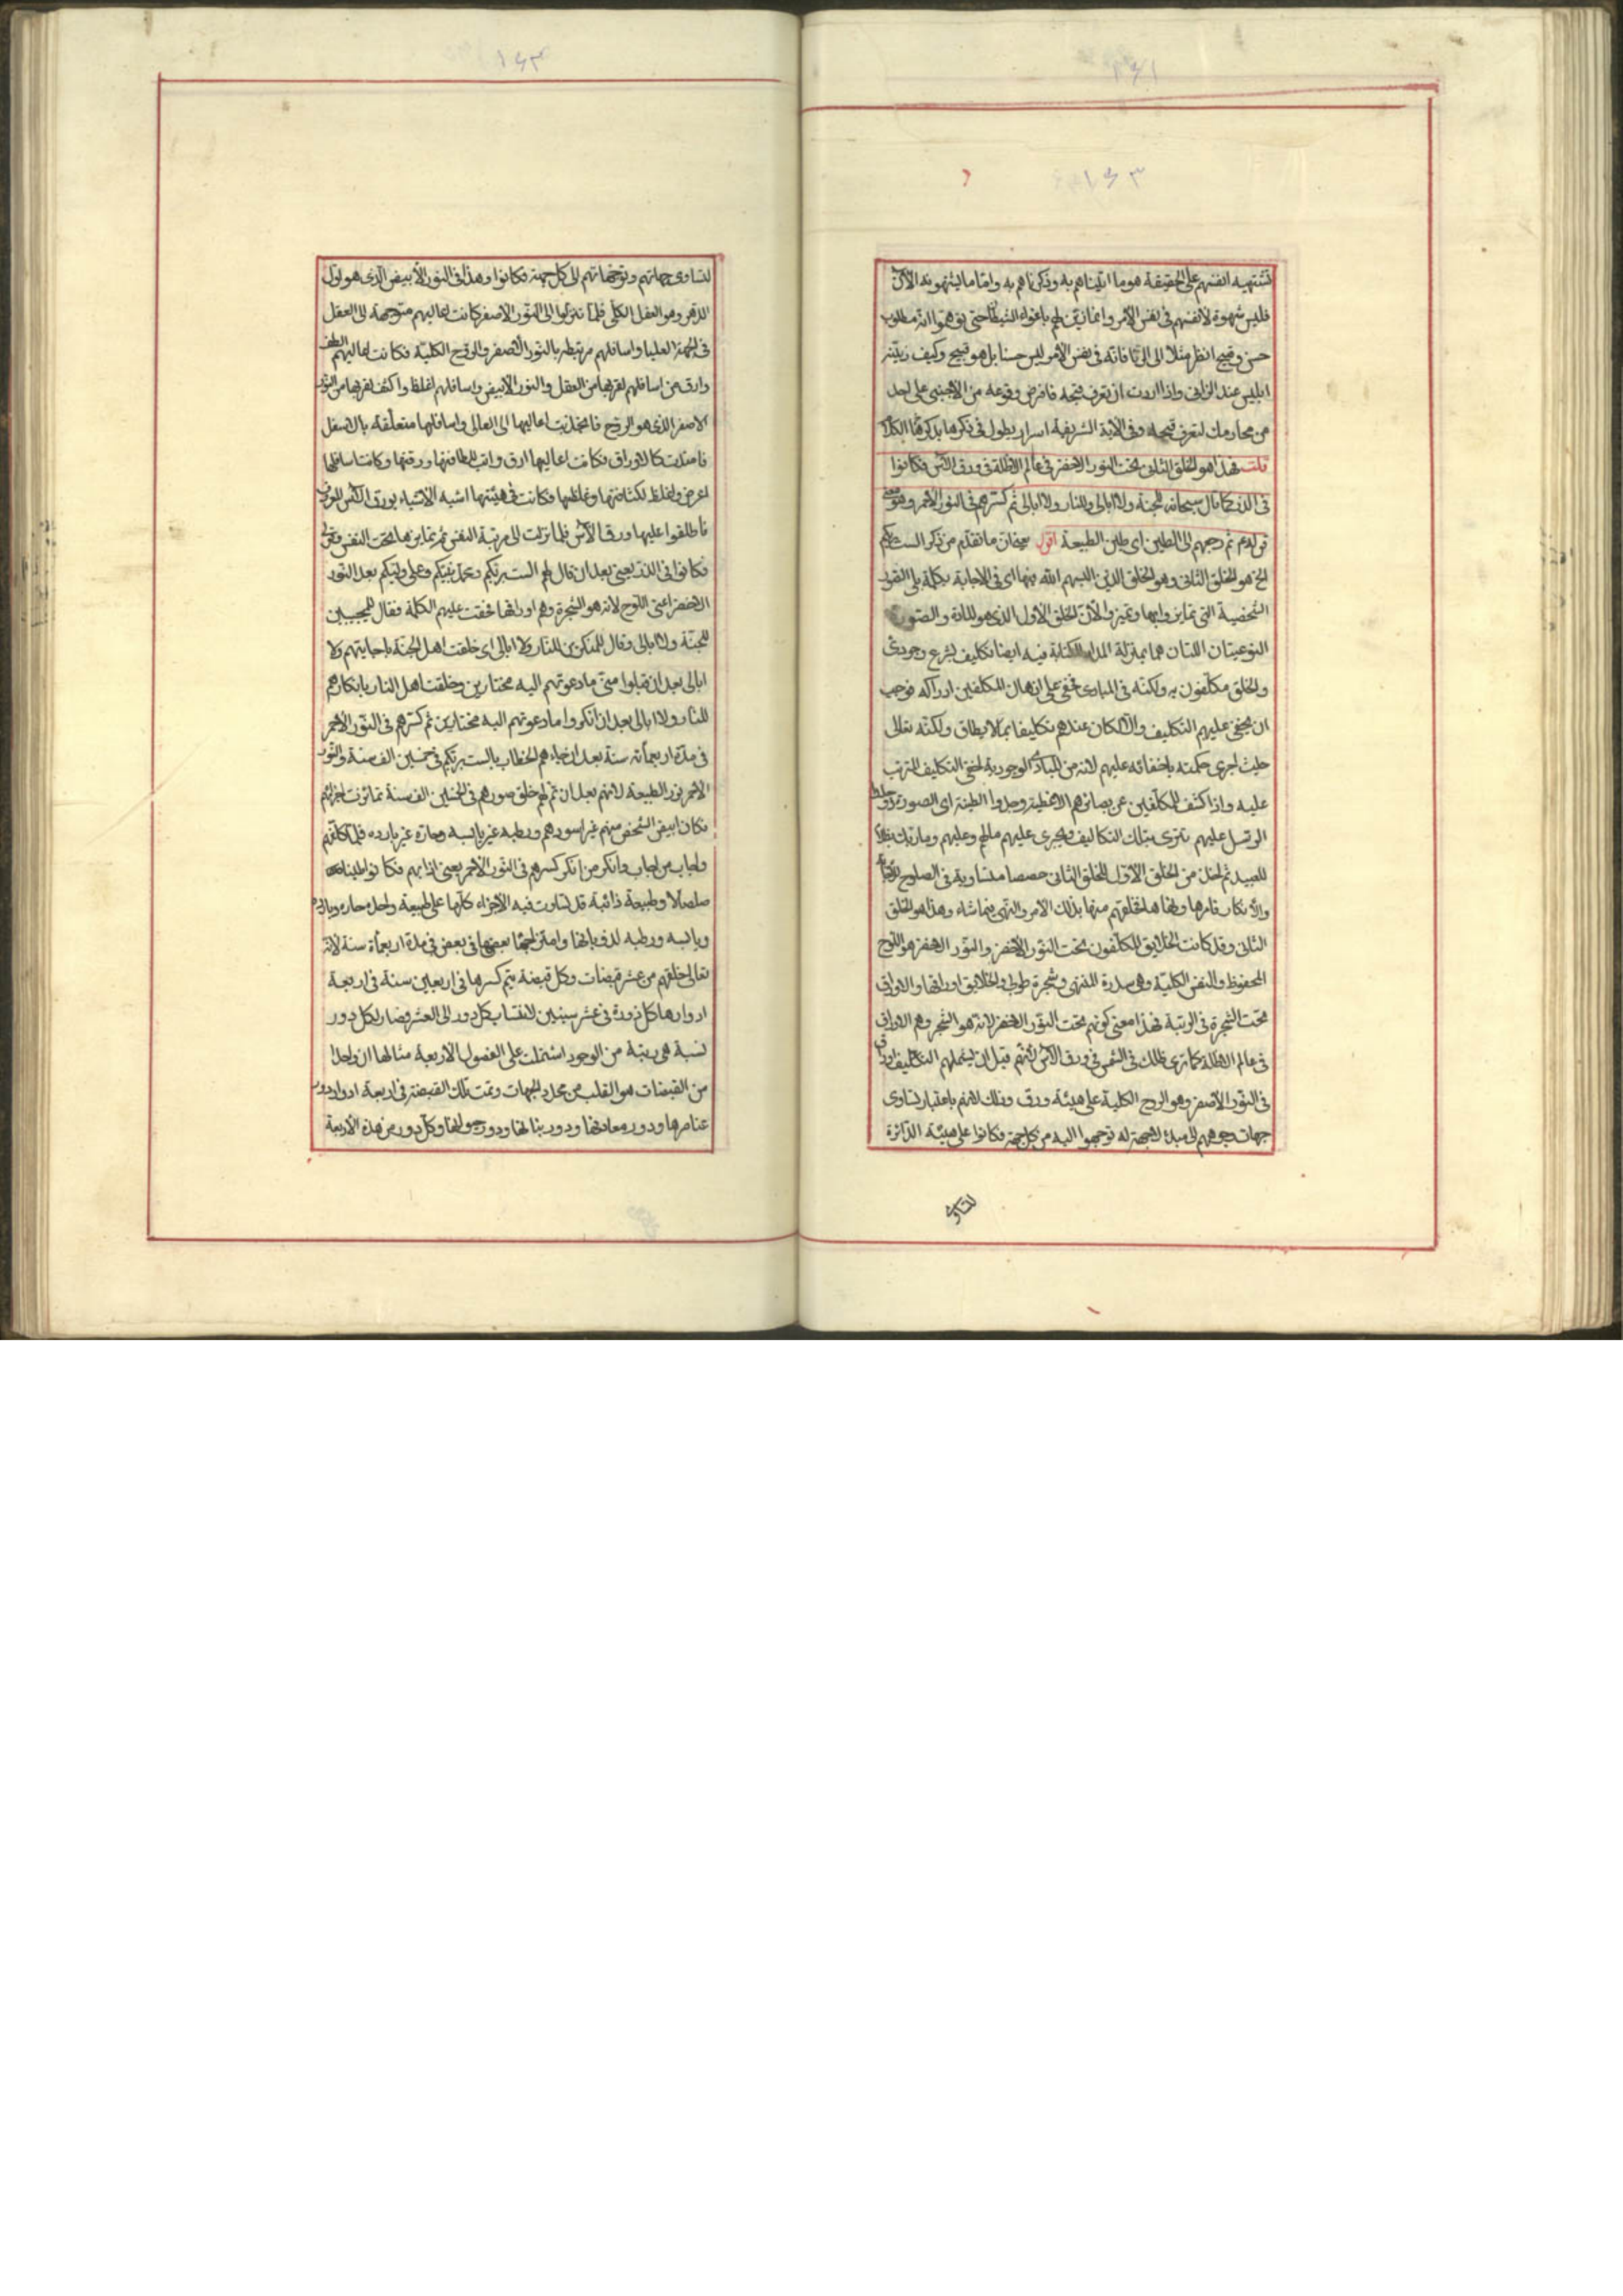 ١٦١
١٦٣
تشتهيه انفسهم على الحقيقة هو ما اتيناهم به وذكرناهم به واما ما يشتهونه الان
فليس شهوة لانفسهم فى نفس الامر وانما زين لهم باغواء الشيطان حتى توهموا انه مطلوب
حسن وقبيح انظر مثلا الى الزنا فانه فى نفس الامر ليس حسنا بل هو قبيح وكيف زينه
ابليس عند الزانى واذا اردت ان تعرف قبحه فافرض وقوعه من الاجنبى على احد
من محارمك لتعرف قبحه وفى الآية الشريفة اسرار يطول فى ذكرها بذكرها الكلام
قلت فهذا هو الخلق الثانى تحت النور الاخضر فى عالم الاظلة فى ورق الآس فكانوا
فى الذر كما قال سبحانه للجنة ولا ابالى وللنار ولا ابالى ثم كسرهم فى النور الاحمر وهو معنى
قوله ثم رجعهم الى الطين اى طين الطبيعة اقول يعنى ان ما تقدم من ذكر الست بربكم
الخ هو الخلق الثانى وهو الخلق الذى البسهم الله فيها اى فى الاجابة بكلمة بلى الصور
الشخصية التى تمايزوا بها وتميزوا لان الخلق الاول الذى هو المادة والصورة
النوعيتان اللتان هما بمنزلة المداد للكتابة فيه ايضا تكاليف لشرع وجودى
والخلق مكلفون به ولكنه فى المبادى خفى على اذهان المكلفين ادراكه فوجب
ان يخفى عليهم التكليف والا لكان عندهم تكليفا بما لا يطاق ولكنه تعالى
حيث اجرى حكمته باخفائه عليهم لانه من المبادى الوجودية لخفى التكليف المترتب
عليه واذا كشف للمكلفين عن بصائرهم الاغطية وجدوا الطينة اى الصورة
الرسل عليهم تترى بتلك التكاليف ويجرى عليهم ما لهم وعليهم وما ربك بظلام
للعبيد ثم اخذ من الخلق الاول للخلق الثانى حصصا متساوية فى الصلوح
والانكار فامرها ونهاها فخلقهم منها بذلك الامر والنهى فيما شاء وهذا هو الخلق
الثانى وقد كانت الخلايق المكلفون تحت النور الاخضر والنور الاخضر هو اللوح
المحفوظ والنفس الكلية وهى سدرة المنتهى وشجرة طوبى والخلايق اوراقها والاوراق
تحت الشجرة فى الرتبة فهذا معنى كونهم تحت النور الاخضر لانه هو الشجر وهم الاوراق
فى عالم الاظلة كما ترى ظلك فى الشمس فى ورق الآس لانهم قبل ان يشملهم التكليف
فى النور الاصفر وهو الروح الكلية على هيئة ورق وذلك لانهم باعتبار تساوى
جهات وجوههم الى مبدء لا جهة له توجهوا اليه من كل جهة فكانوا على هيئة الدائرة
لتساوى
١٦٢
لتساوى جهاتهم وتوجهاتهم الى كل جهة فكانوا وهذا فى النور الابيض الذى هو اول
الدهر وهو العقل الكلى فلما نزلوا الى النور الاصفر كانت اعاليهم متوجهة الى العقل
فى الجهة العليا واسافلهم مرتبطة بالنور الاصفر والروح الكلية فكانت اعاليهم الطف
وارق من اسافلهم لقربها من العقل والنور الابيض واسافلهم اغلظ واكثف لقربها من النور
الاصفر الذى هو الروح فانجذبت اعاليها الى العالى واسافلها متعلقة بالاسفل
فامتدت كالاوراق فكانت اعاليها ارق واتب للطافتها ورقتها وكانت اسافلها
اعرض واغلظ لكثافتها وغلظها فكانت فى هيئتها اشبه الاشياء بورق الآس
فاطلقوا عليها ورق الآس فلما نزلت الى مرتبة النفس ثم تمايزها تحت النفس
فكانوا فى الذر يعنى بعد ان قال لهم الست بربكم ومحمد نبيكم وعلى وليكم بعد النور
الاخضر اعنى اللوح لانه هو الشجرة وهم اوراقها حقت عليهم الكلمة فقال للمجيبين
للجنة ولا ابالى وقال للمنكرين للنار ولا ابالى اى خلقت اهل الجنة باجابتهم ولا
ابالى بعد ان قبلوا منى ما دعوتهم اليه مختارين وخلقت اهل النار بانكارهم
للنار ولا ابالى بعد ان انكروا ما دعوتهم اليه مختارين ثم كسرهم فى النور الاحمر
فى مدة اربعمائة سنة بعد ان خاطبهم الخطاب بالست بربكم فى خمسين الف سنة والنور
الاحمر نور الطبيعة لانهم بعد ان تم لهم خلق صورهم فى الخمسين الف سنة تمايزت اجزائهم
فكان ابيض الشخص منهم غير اسودهم ورطبه غير يابسه وحاره غير بارده فلما كلفهم
واجاب من اجاب وانكر من انكر كسرهم فى النور الاحمر يعنى اذابهم فكانوا طينا
صلصالا وطبيعة ذائبة قد تساوت فيه الاجزاء كلها على طبيعة واحدة حاره وبارده
ويابسه ورطبه لذوبانها وامتزاجها بعضها فى بعض فى مدة اربعمأة سنة لانه
تعالى خلقهم من عشر قبضات وكل قبضة يتم كسرها فى اربعين سنة فى اربعة
ادوارها كل دورة فى عشر سنين لانتساب كل دور الى العشر فصار لكل دور
نسبة هى رتبة من الوجود اشتملت على الفصول الاربعة مثالها ان واحدا
من القبضات هو القلب من محدد الجهات وتمت تلك القبضة فى اربعة ادوار دور
عناصرها ودور معادنها ودور نباتها ودور حيوانها وكل دور من هذه الاربعة